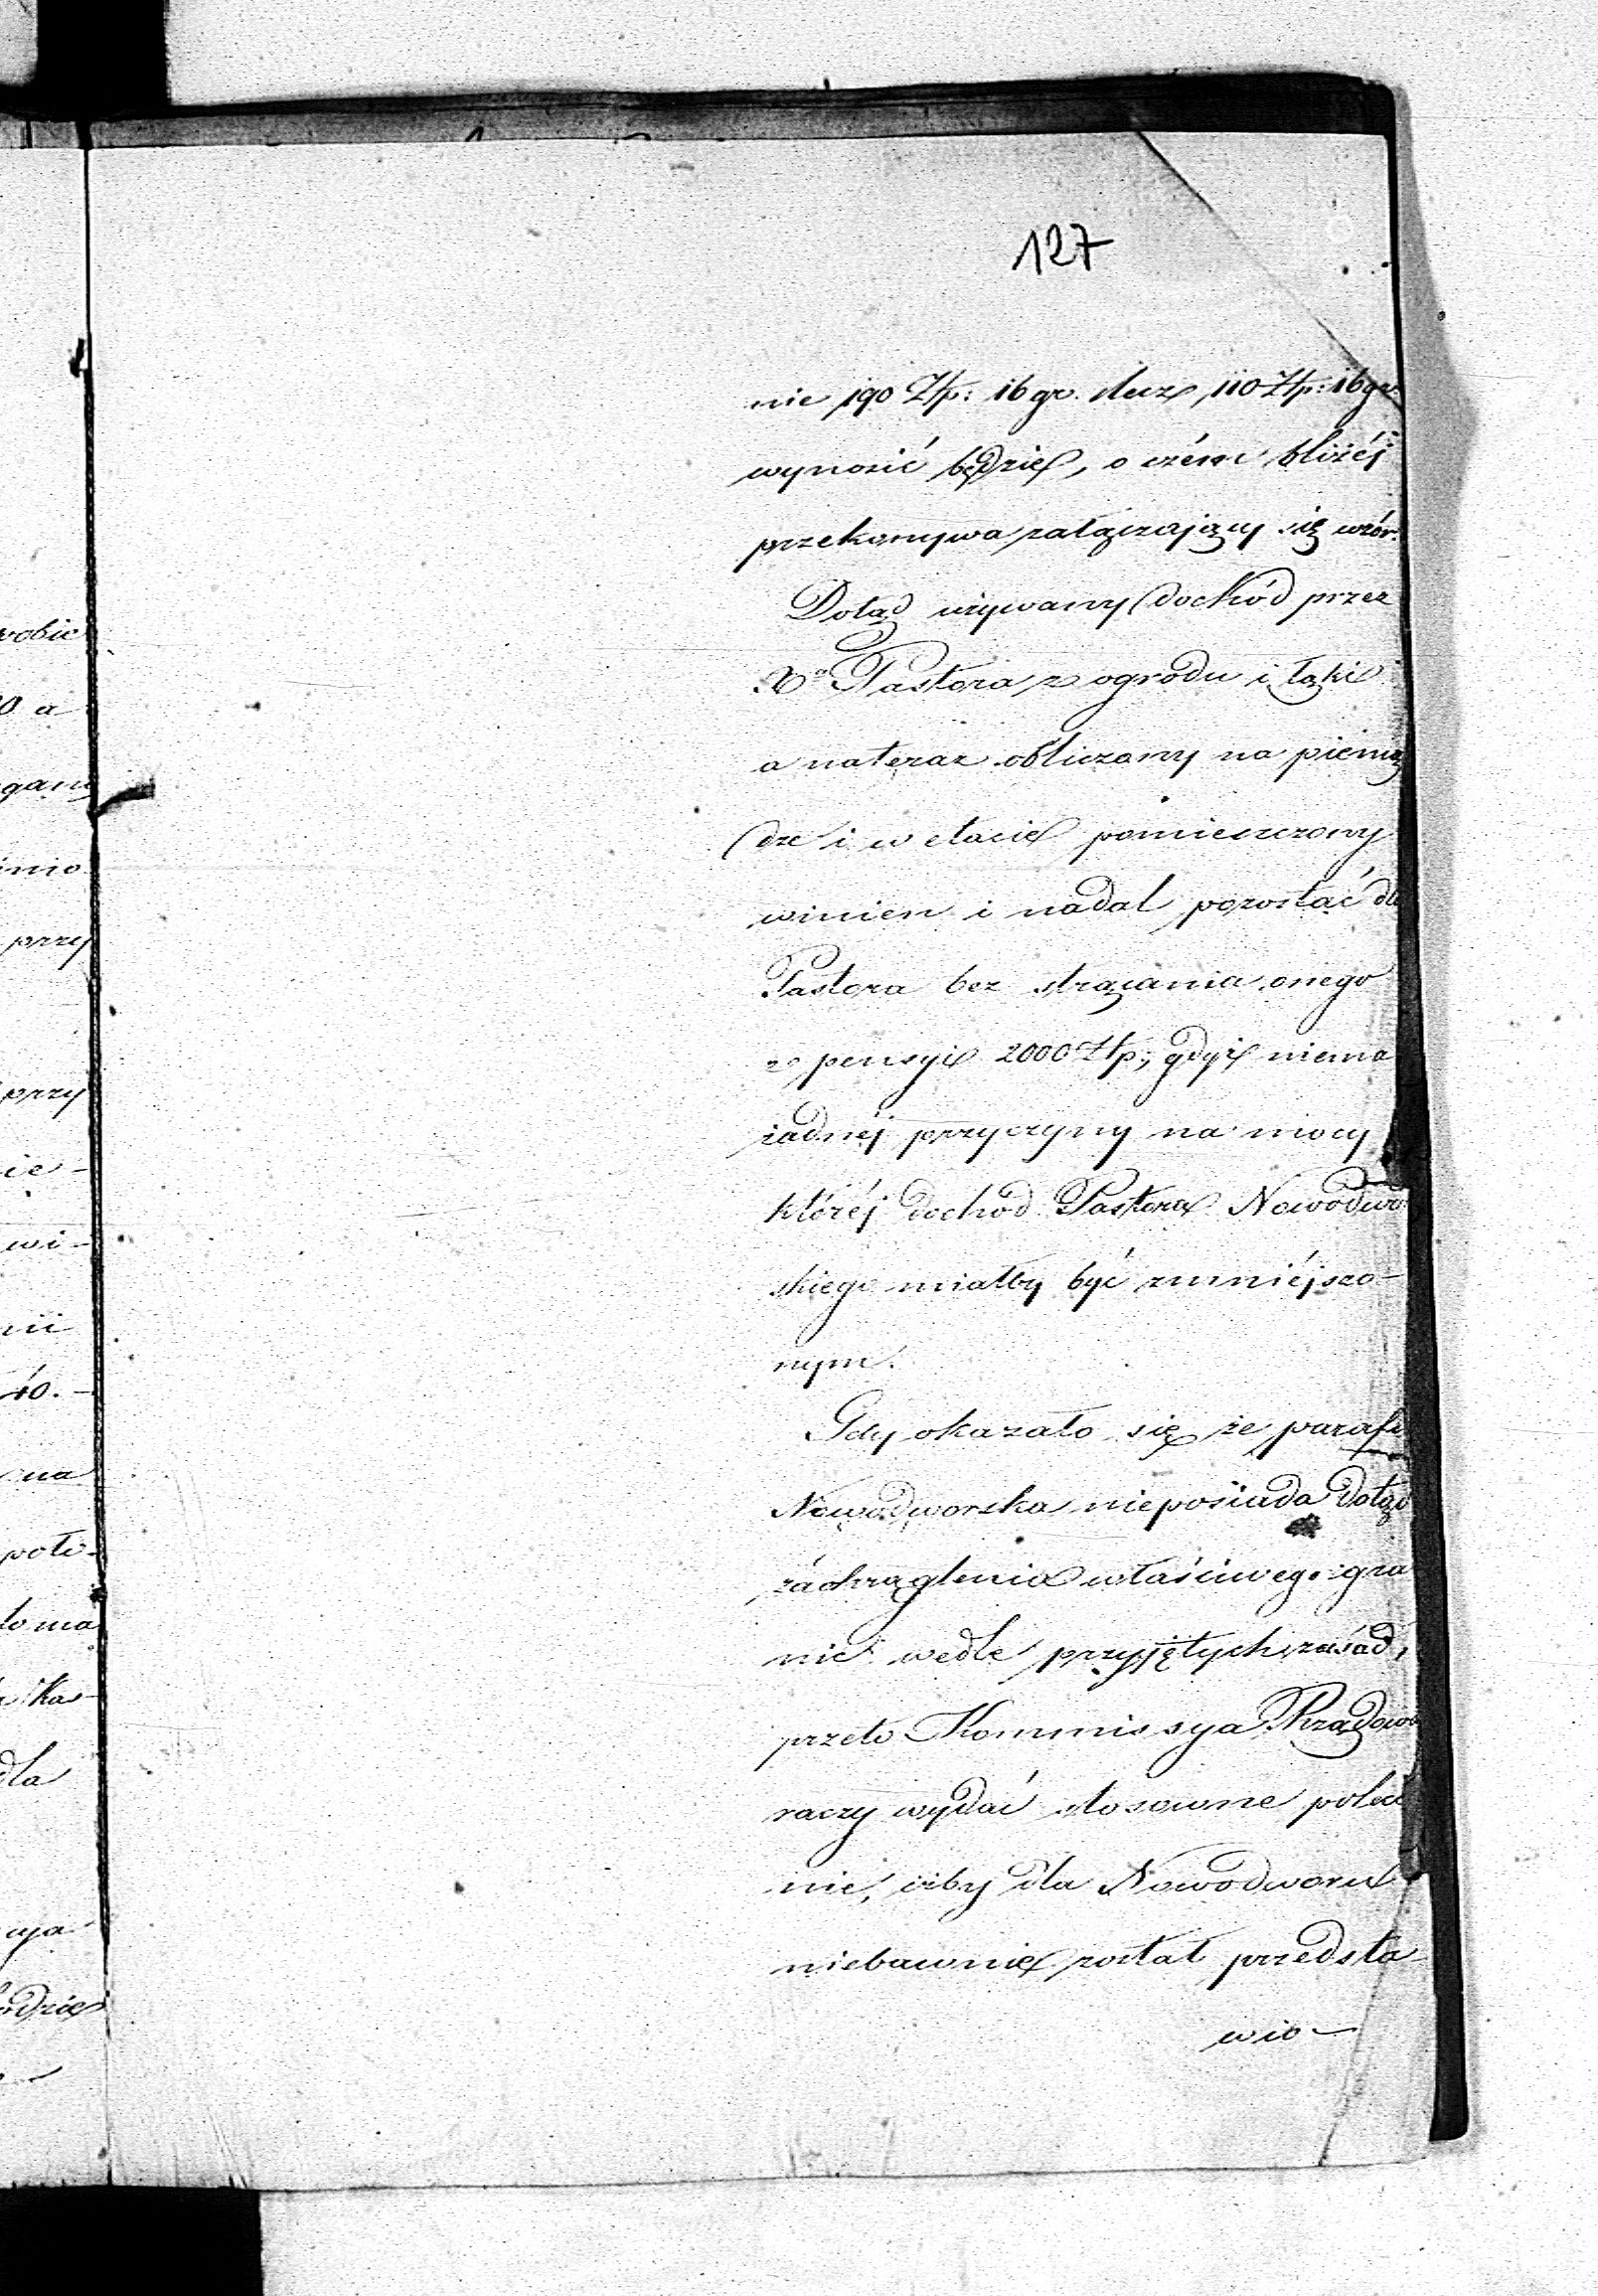 127
nie 190 Złp: 16 gr. lecz 110 Złp: 16 gr
wynosić będzie, o czém bliżéj
przekonywa załączający się wzór.
Dotąd używany dochód przez
Xa Pastora z ogrodu i łąki
a nateraz obliczony na pienią
dze i w etacie pomieszczony
winien i nadal pozostać dla
Pastora bez strącania onego
z pensyi 2000 Złp; gdyż niema
żadnéj przyczyny na mocy
któréj dochód Pastora Nowodwor
skiego miałby być zmniéjszo-
nym.
Gdy okazało się że parafi
Nowodworska nieposiada dotąd
zaokrąglenia właściwego gra
nic wedle przyjętych zasad,
przeto Kommissya Rządowa
raczy wydać stosowne polece
nie, iżby dla Nowodworu
niebawnie został przedsta-
wio-
robie
0 a
gany
imio
przy
przy
ie-
wi-
nii
40.-
na
poło-
to ma
Kas-
dla
cya
będzie